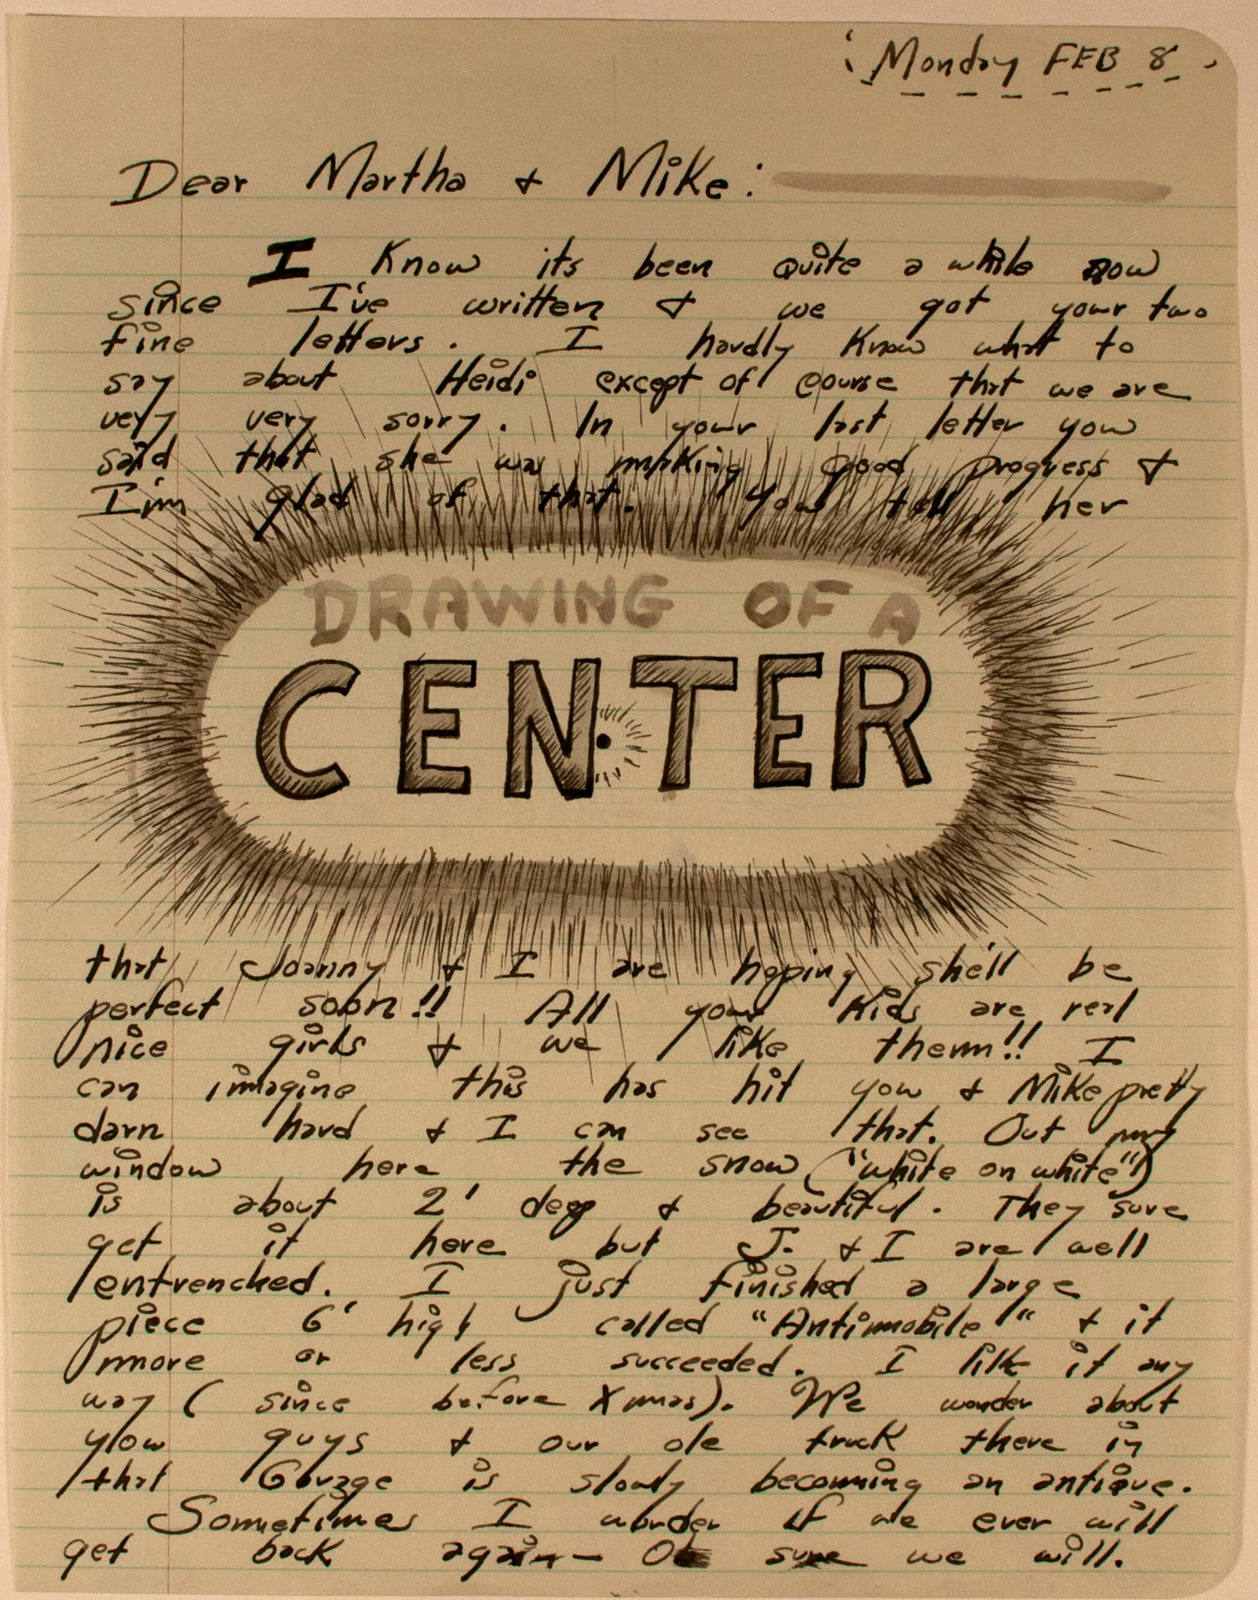 Monday FEB 8
Dear Martha & Mike:
I Know its been quite a while now
since I've written & we got your two
fine letters. I hardly Know what to
say about Heidi except of course that we are
very very sorry. In your last letter you
said that she was making good progress &
I'm glad of that. You tell her
DRAWING OF A
CENTER
that Joanny & I are hoping she'll be
perfect soon!! All your Kids are real
nice girls & we like them!! I
can imagine this has hit you & Mike pretty
darn hard & I can see that. Out my
window here the snow ("white on white")
is about 2' deep & beautiful. They sure
get it here but J. & I are well
entrenched. I just finished a large
piece 6' high called "Antimobile" & it
more or less succeeded. I like it any
way (since before Xmas). We wonder about
you guys & our ole truck there in
that Garage is slowly becoming an antique.
Sometimes I wonder if we ever will
get back again— sure we will.